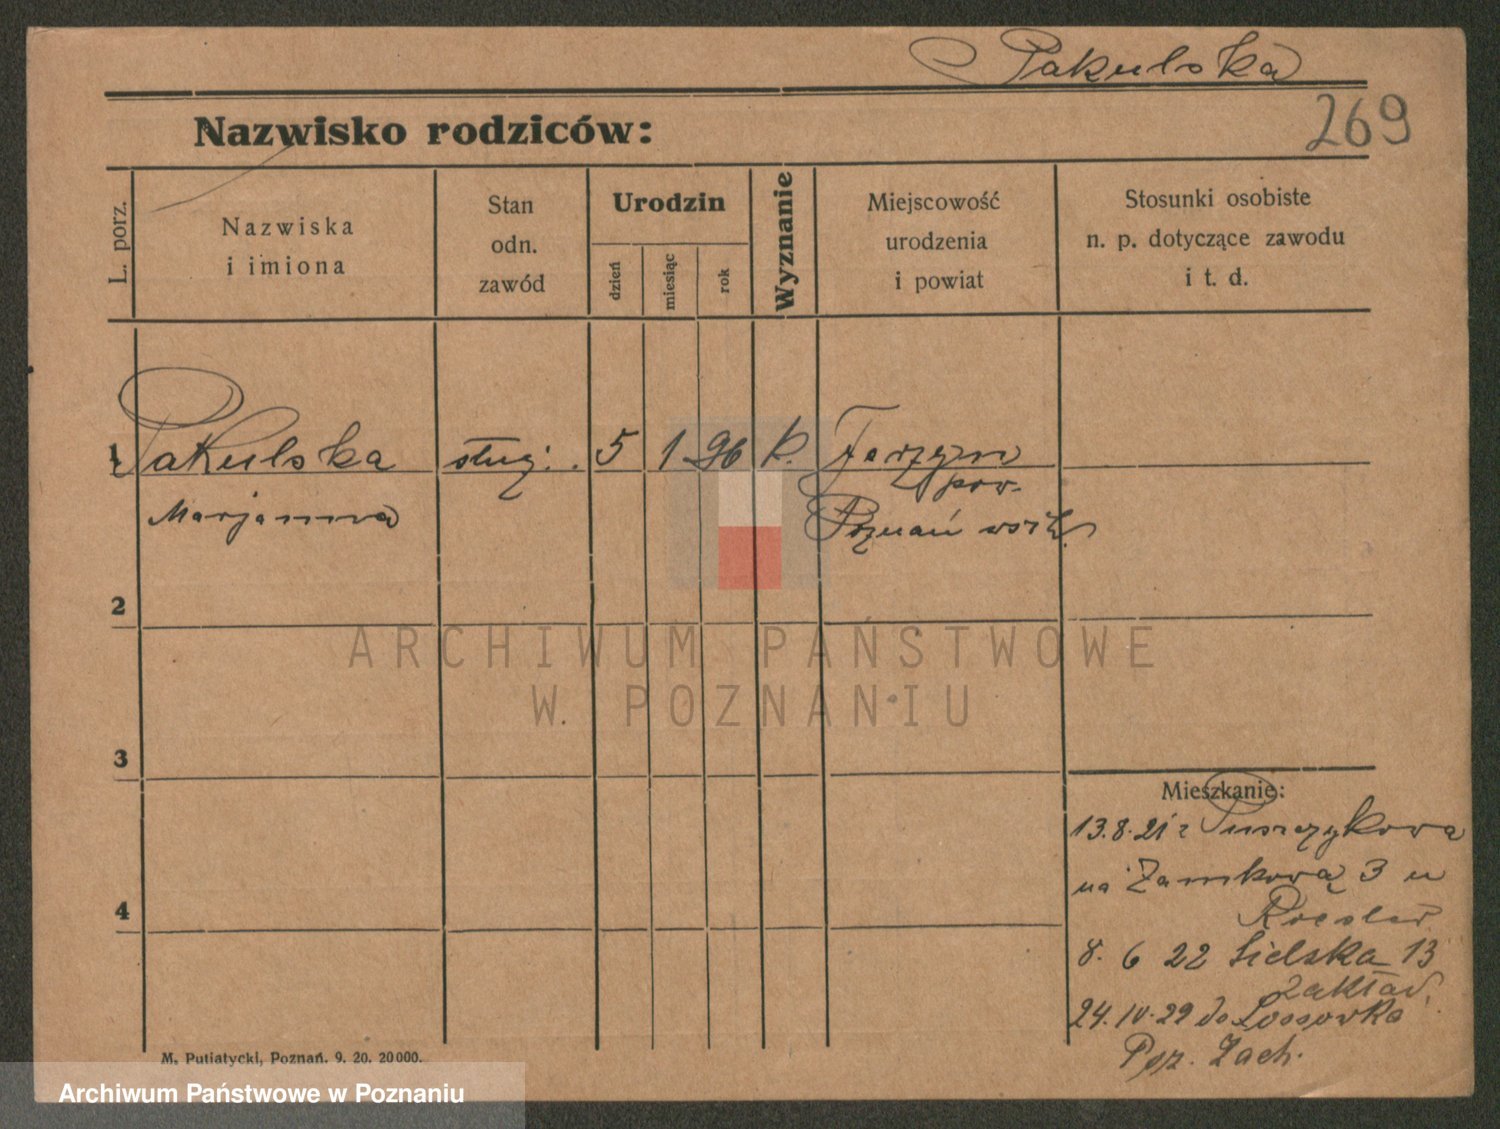 Pakulska
269
Nazwisko rodziców:
L. porz.
Nazwiska
i imiona
Stan
odn.
zawód
Urodzin
dzień
miesiąc
rok
Wyznanie
Miejscowość
urodzenia
i powiat
Stosunki osobiste
n. p. dotyczące zawodu
i t. d.
1 Pakulska służ. 5 1 96 k.
pow.
Marjanna Poznań wsch.
2
3
4
Mieszkanie:
13.8.21 z Puszczykowa
na Zamkową 3 u
8. 6 22 Sielska 13
Zakład.
24. IV. 29 do
Poz. Zach.
M. Putiatycki, Poznań. 9. 20. 20000.
ARCHIWUM PAŃSTWOWE
W POZNANIU
Archiwum Państwowe w Poznaniu